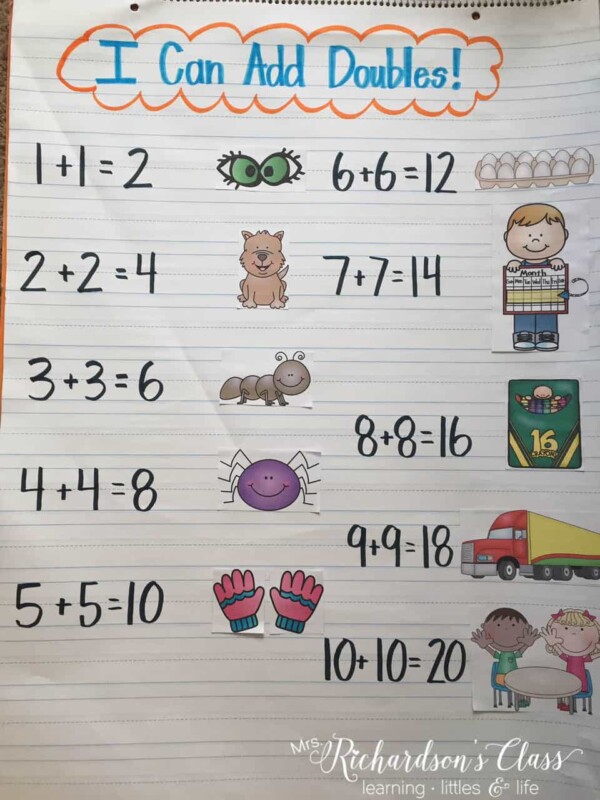 I Can Add Doubles!
1+1=2
2+2=4
3+3=6
4+4=8
5+5=10
6+6=12
7+7=14
Month
8+8=16
16
CRAYONS
9+9=18
10+10=20
Mrs. Richardson's Class
learning · littles & life